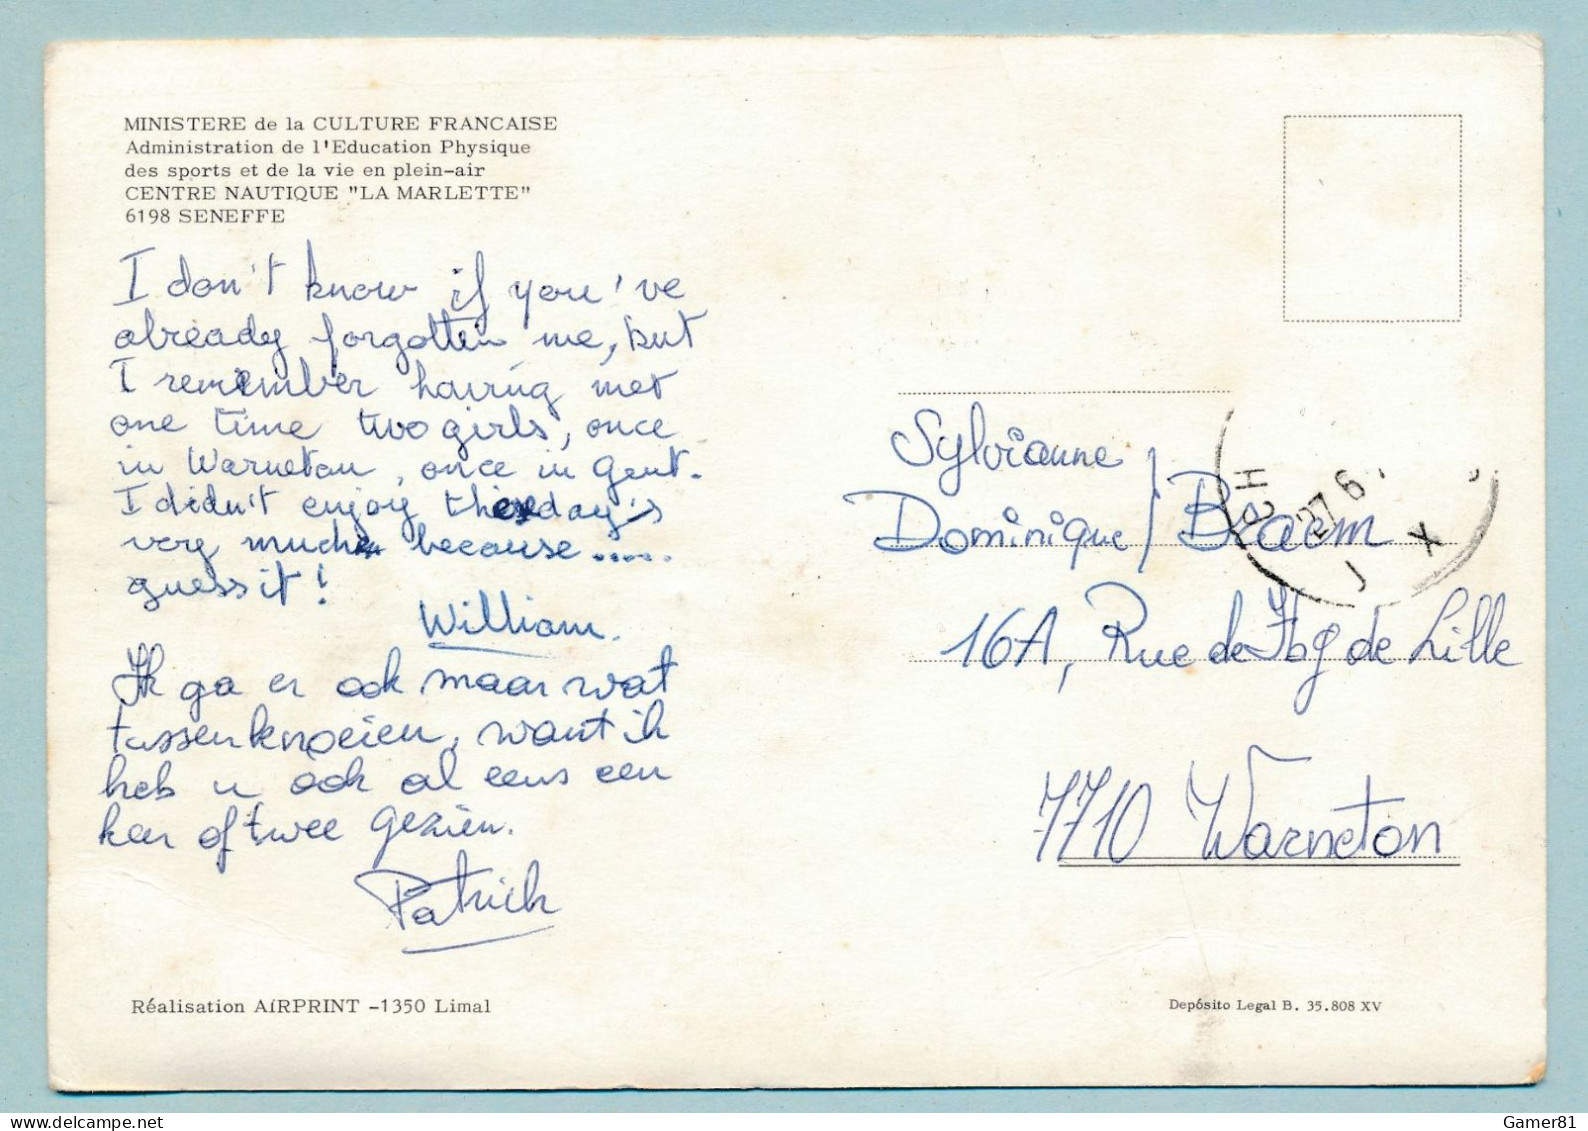 MINISTERE de la CULTURE FRANCAISE
Administration de l'Education Physique
des sports et de la vie en plein-air
CENTRE NAUTIQUE "LA MARLETTE"
6198 SENEFFE
I don't know if you've
already forgotten me, but
I remember having met
one time two girls, once
in Warneton, once in Gent.
I didn't enjoy these day's
very much because .....
guess it!
William.
Ik ga er ook maar wat
tussenknoeien, want ik
heb u ook al eens een
keer of twee gezien.
Patrick
Réalisation AIRPRINT -1350 Limal
Sylvianne
Dominique / Braem
16A, Rue de Fbg de Lille
7710 Warneton
27 6
X
Depósito Legal B. 35.808 XV
Gamer81